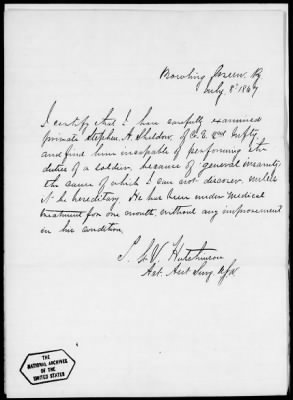 Bowling Green, Ky
July 8" 1867
I certify that I have carefully examined
private Stephen A. Sheldow, of Co. E. Infty,
and find him incapable of performing the
duties of a soldier, because of general insanity,
the cause of which I can not discover, unless
it be hereditary. He has been under medical
treatment for one month, without any improvement
in his condition.
Hutchinson
Act. Asst Surg. USA
THE
NATIONAL ARCHIVES
OF THE
UNITED STATES